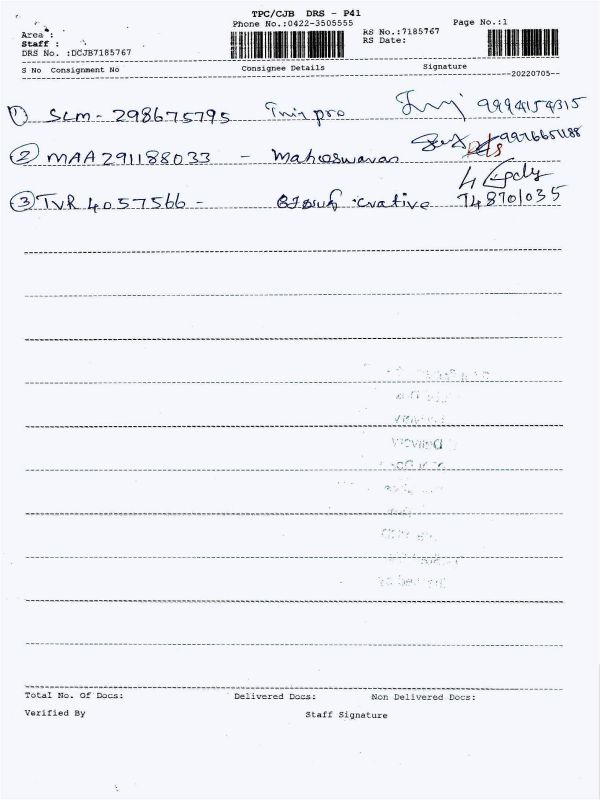 TPC/CJB DRS - P41
Phone No.:0422-3505555
Page No.:1
Area :
Staff :
DRS No. :DCJB7185767
RS No.:7185767
RS Date:
S No Consignment No Consignee Details Signature
--20220705--
① SLM - 298675795 pro 9994154315
② MAA 291188033 - Maheswaran
③ TVR 4057566 - creative 748701035
Delivery
Total No. Of Docs: Delivered Docs: Non Delivered Docs:
Verified By Staff Signature